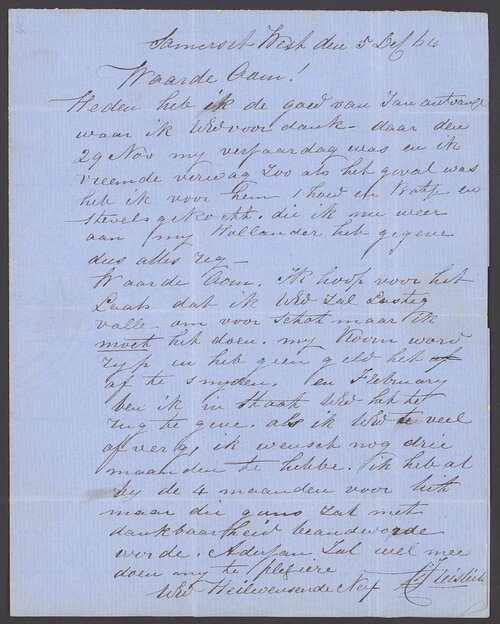 Somerset West den 5 Dec 64
Waarde Oom!
Heden heb ik de goed van Jan ontvang
waar ik WEd voor dank - daar den
29 Nov my verjaardag was en ik
vreemde verwag zoo als het geval was
heb ik voor hem 1 hoed en
stevels gekocht. die ik nu weer
aan my Hollander heb gegeve
dus alles reg -
Waarde Oom. Ik hoop voor het
Laats dat ik WEd zal Lastig
valle. om voor schot maar Ik
moet het doen. my Koorn word
ryp en heb geen geld het
af te snyden. en February
ben ik in staat WEd het
rug te geve. als ik WEd te veel
afverg, ik wensch nog drie
maanden te hebbe. Ik heb al
by de 4 maanden voor
maar die guns zal met
dankbaarheid beandworde
worde. Adriaan zal wel mee
doen my te plesiere
WEd Heilwensende Neef